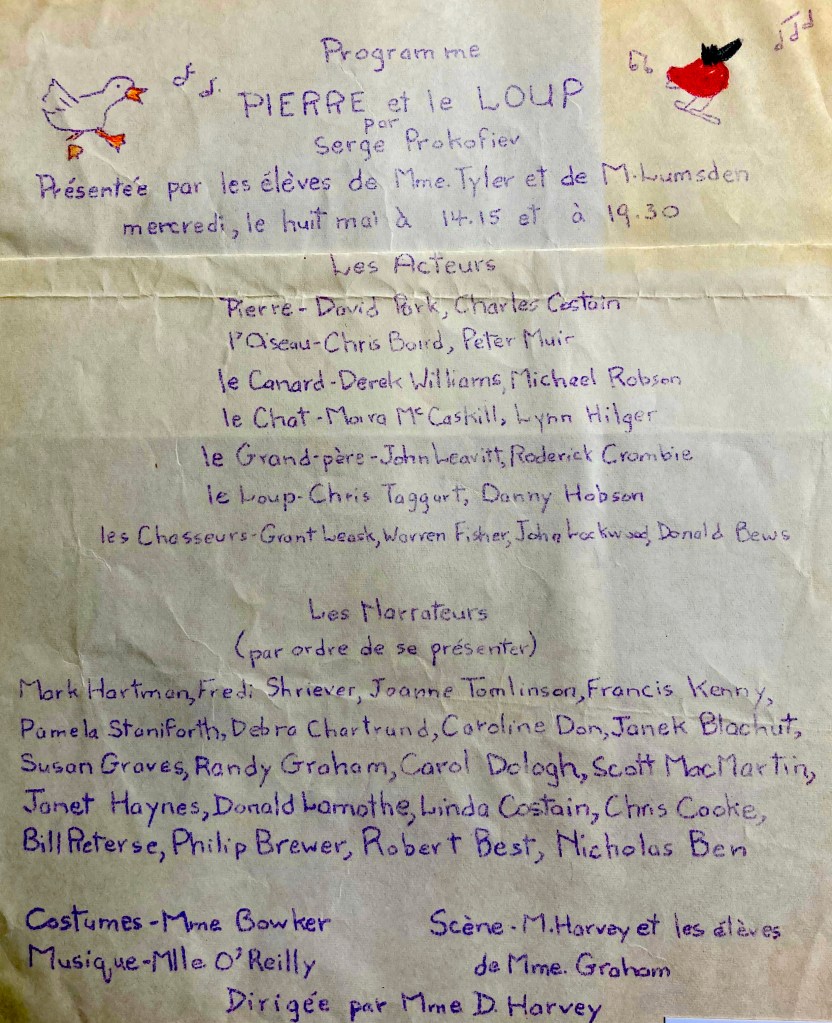 Programme
PIERRE et le LOUP
par
Serge Prokofiev
Présentée par les élèves de Mme. Tyler et de M. Lumsden
mercredi, le huit mai à 14.15 et à 19.30
Les Acteurs
Pierre - David Park, Charles Costain
l'Oiseau - Chris Baird, Peter Muir
le Canard - Derek Williams, Michael Robson
le Chat - Moira McCaskill, Lynn Hilger
le Grand-père - John Leavitt, Roderick Crombie
le Loup - Chris Taggart, Danny Hobson
les Chasseurs - Grant Leask, Warren Fisher, John Lockwood, Donald Bews
Les Narrateurs
(par ordre de se présenter)
Mark Hartman, Fredi Shriever, Joanne Tomlinson, Francis Kenny,
Pamela Staniforth, Debra Chartrand, Caroline Don, Janek Blachut,
Susan Graves, Randy Graham, Carol Dologh, Scott MacMartin,
Janet Haynes, Donald Lamothe, Linda Costain, Chris Cooke,
Bill Pieterse, Philip Brewer, Robert Best, Nicholas Ben
Costumes - Mme Bowker
Musique - Mlle O'Reilly
Scène - M. Harvey et les élèves
de Mme. Graham
Dirigée par Mme D. Harvey